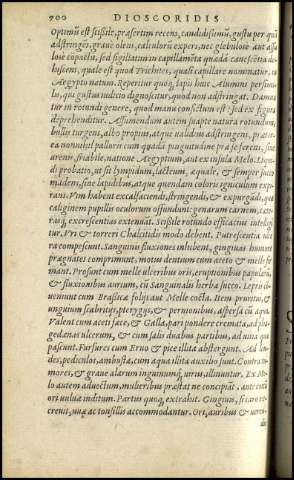 700 DIOSCORIDIS
Optimũ est scissile, præsertim recens, candidissimũ, gustu per quã
adstringens, graue olens, calculorũ expers, nec glebulose aut assu
lose cõpactũ, sed sigillatim in capillamẽta quædã canescẽtia de
hiscens, quale est quod Trichites, quasi capillare nominatur,
Aegypto natum. Repertitur quoq; lapis huic Alumini persimi
lis, qui gustus iudicio dignoscitur, quod non adstringat. Damna
tur in rotundo genere, quod manu confictum est
deprehenditur. Assumendum autem suapte natura rotundum,
bullis turgens, albo propius, atque ualidius adstringens, præte
ea nonnihil pallori cum quadã pinguitudine præ se ferens, sine
arenis, friabile, natione Aegyptum, aut ex insula Melo. Liqui
di probatio, ut sit lympidum, lacteum, æquale, & semper suco
madens, sine lapidibus, atque quendam coloris igniculum expi
rans. Vim habent excalfaciendi, stringendi, & expurgãdi, quæ
caliginem pupillis oculorum offundunt: genarum carnem, cæte
raq; excrescentia extenuat. Scissile rotundo efficacius intelligi
tur. Vri & torreri Chalcitidis modo debent. Putrescentia ulce
ra compescunt. Sanguinis fluxiones inhibent, gingiuas humore
prægnantes comprimunt, motus dentium cum aceto & melle fir
mant. Prosunt cum melle ulceribus oris, eruptionibus papularũ,
& fluxionibus aurium, cũ Sanguinalis herba succo. Lepris di
uiniunt cum Brassicæ folijs aut Melle coctæ. Item pruritu, &
unguium scabritijs, pterygijs, & pernionibus, aspersa cũ aqua.
Valent cum aceti fæce, & Galla, pari pondere cremata, ad pha
gedænas ulcerum, & cum salis duabus partibus, ad nuna quæ
pascunt. Furfures cum Eruo & pice illita abstergunt. Ad len
des, pediculos, ambusta, cum aqua illita auxilio sunt. Contra tu
mores, & graue alarum inguinumq; uirus, illinuntur. Ex Me
lo autem aduectum, mulieribus præstat ne concipiãt, ante coitũ
ori uuluæ inditum. Partus quoq; extrahit. Gingiuis, si caro ex
creuit, uuæ ac tonsillis accommodantur. Ori, auribus &